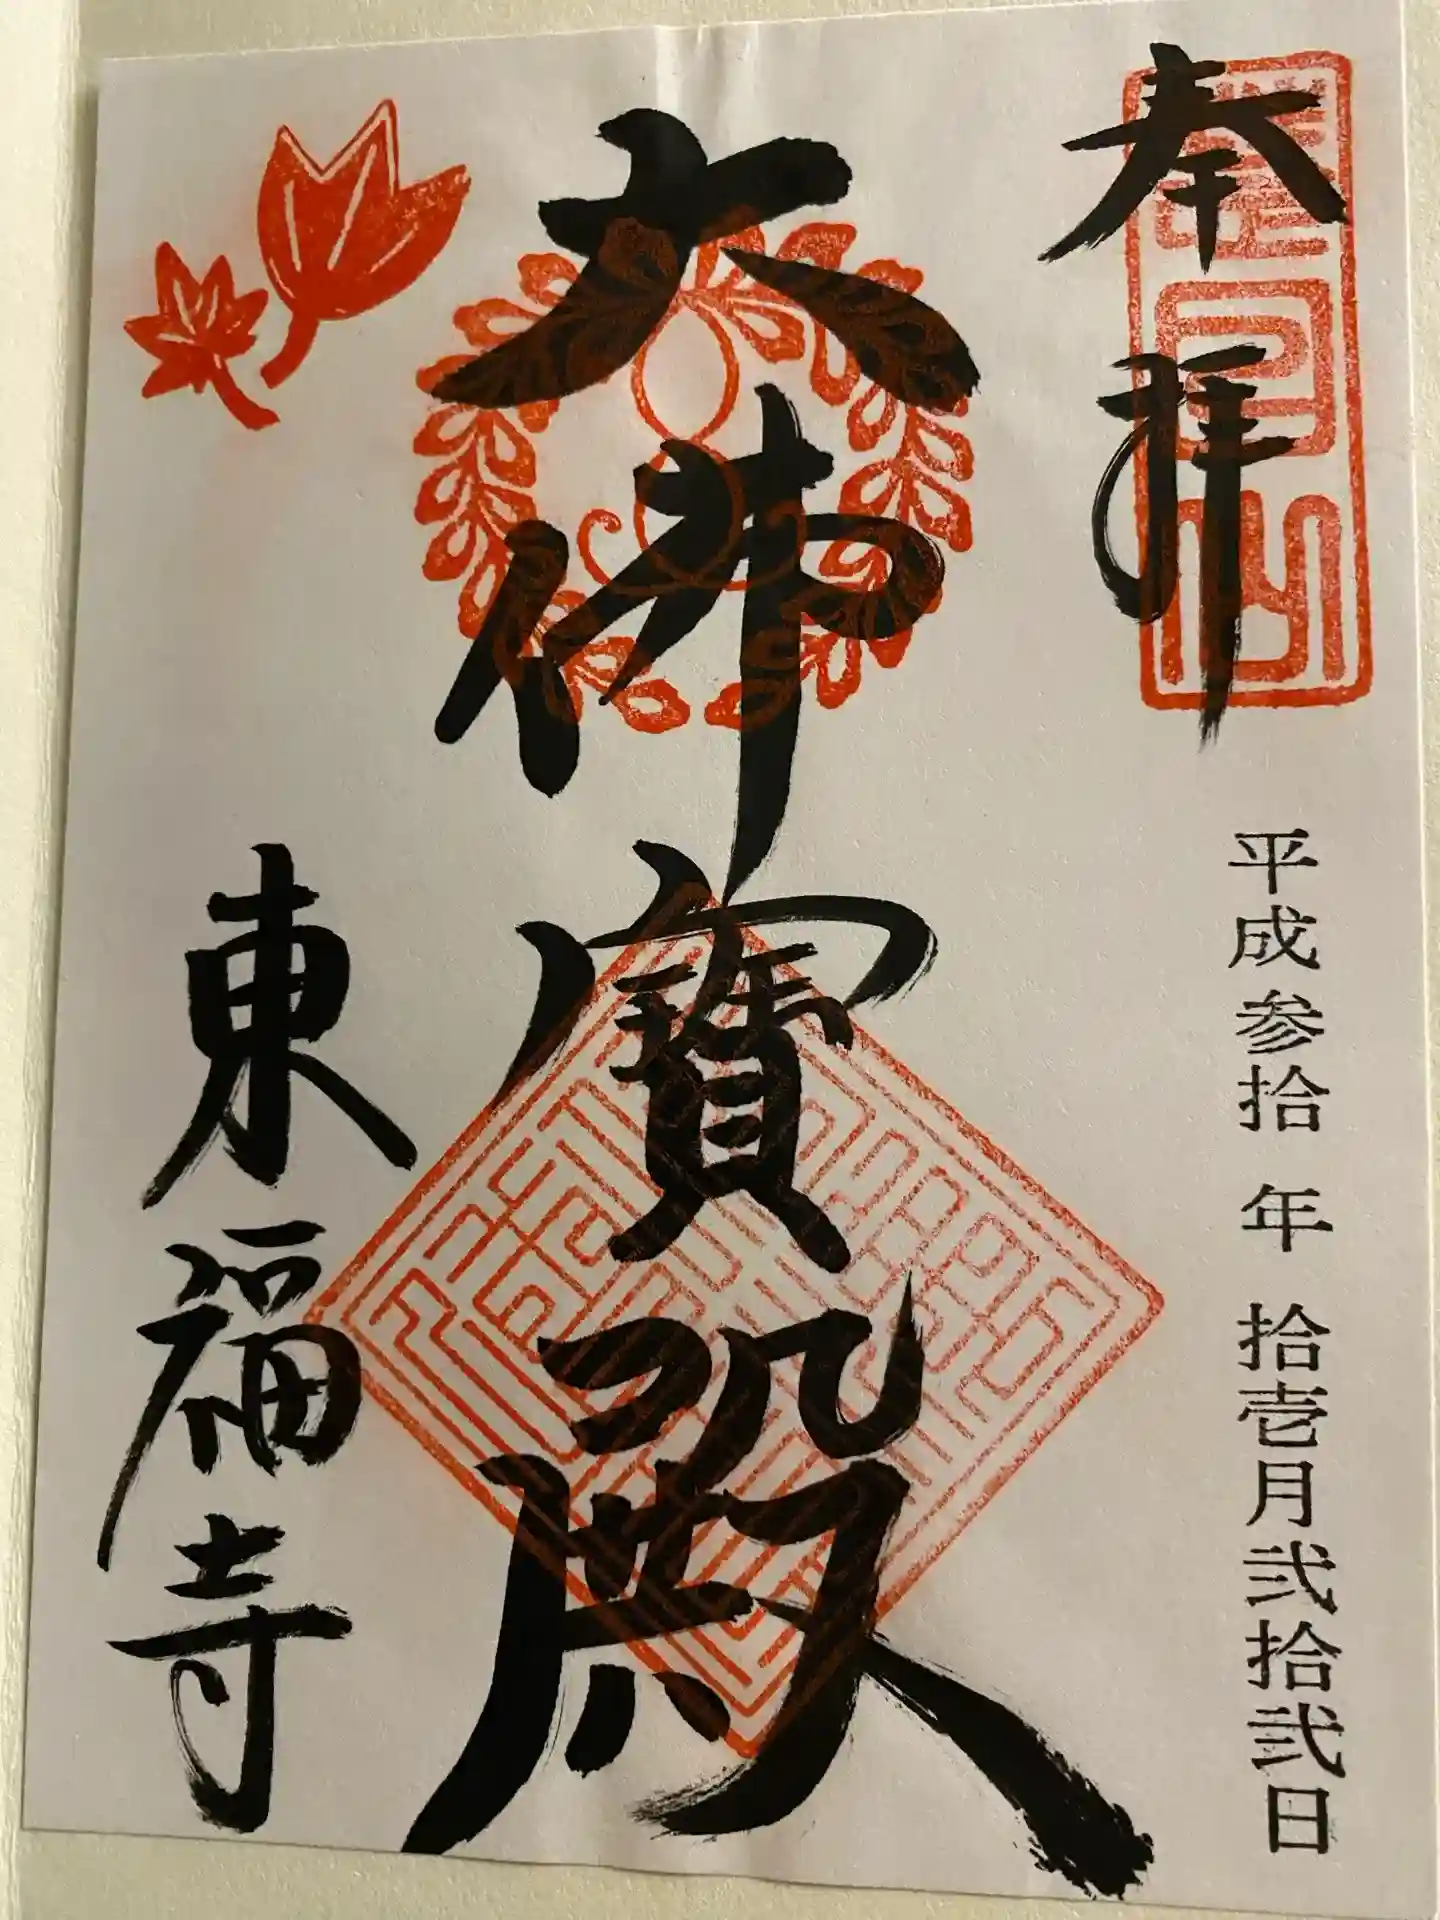 奉拝
慧日山
平成参拾年拾壱月弐拾弐日
大佛寳殿
東福寺